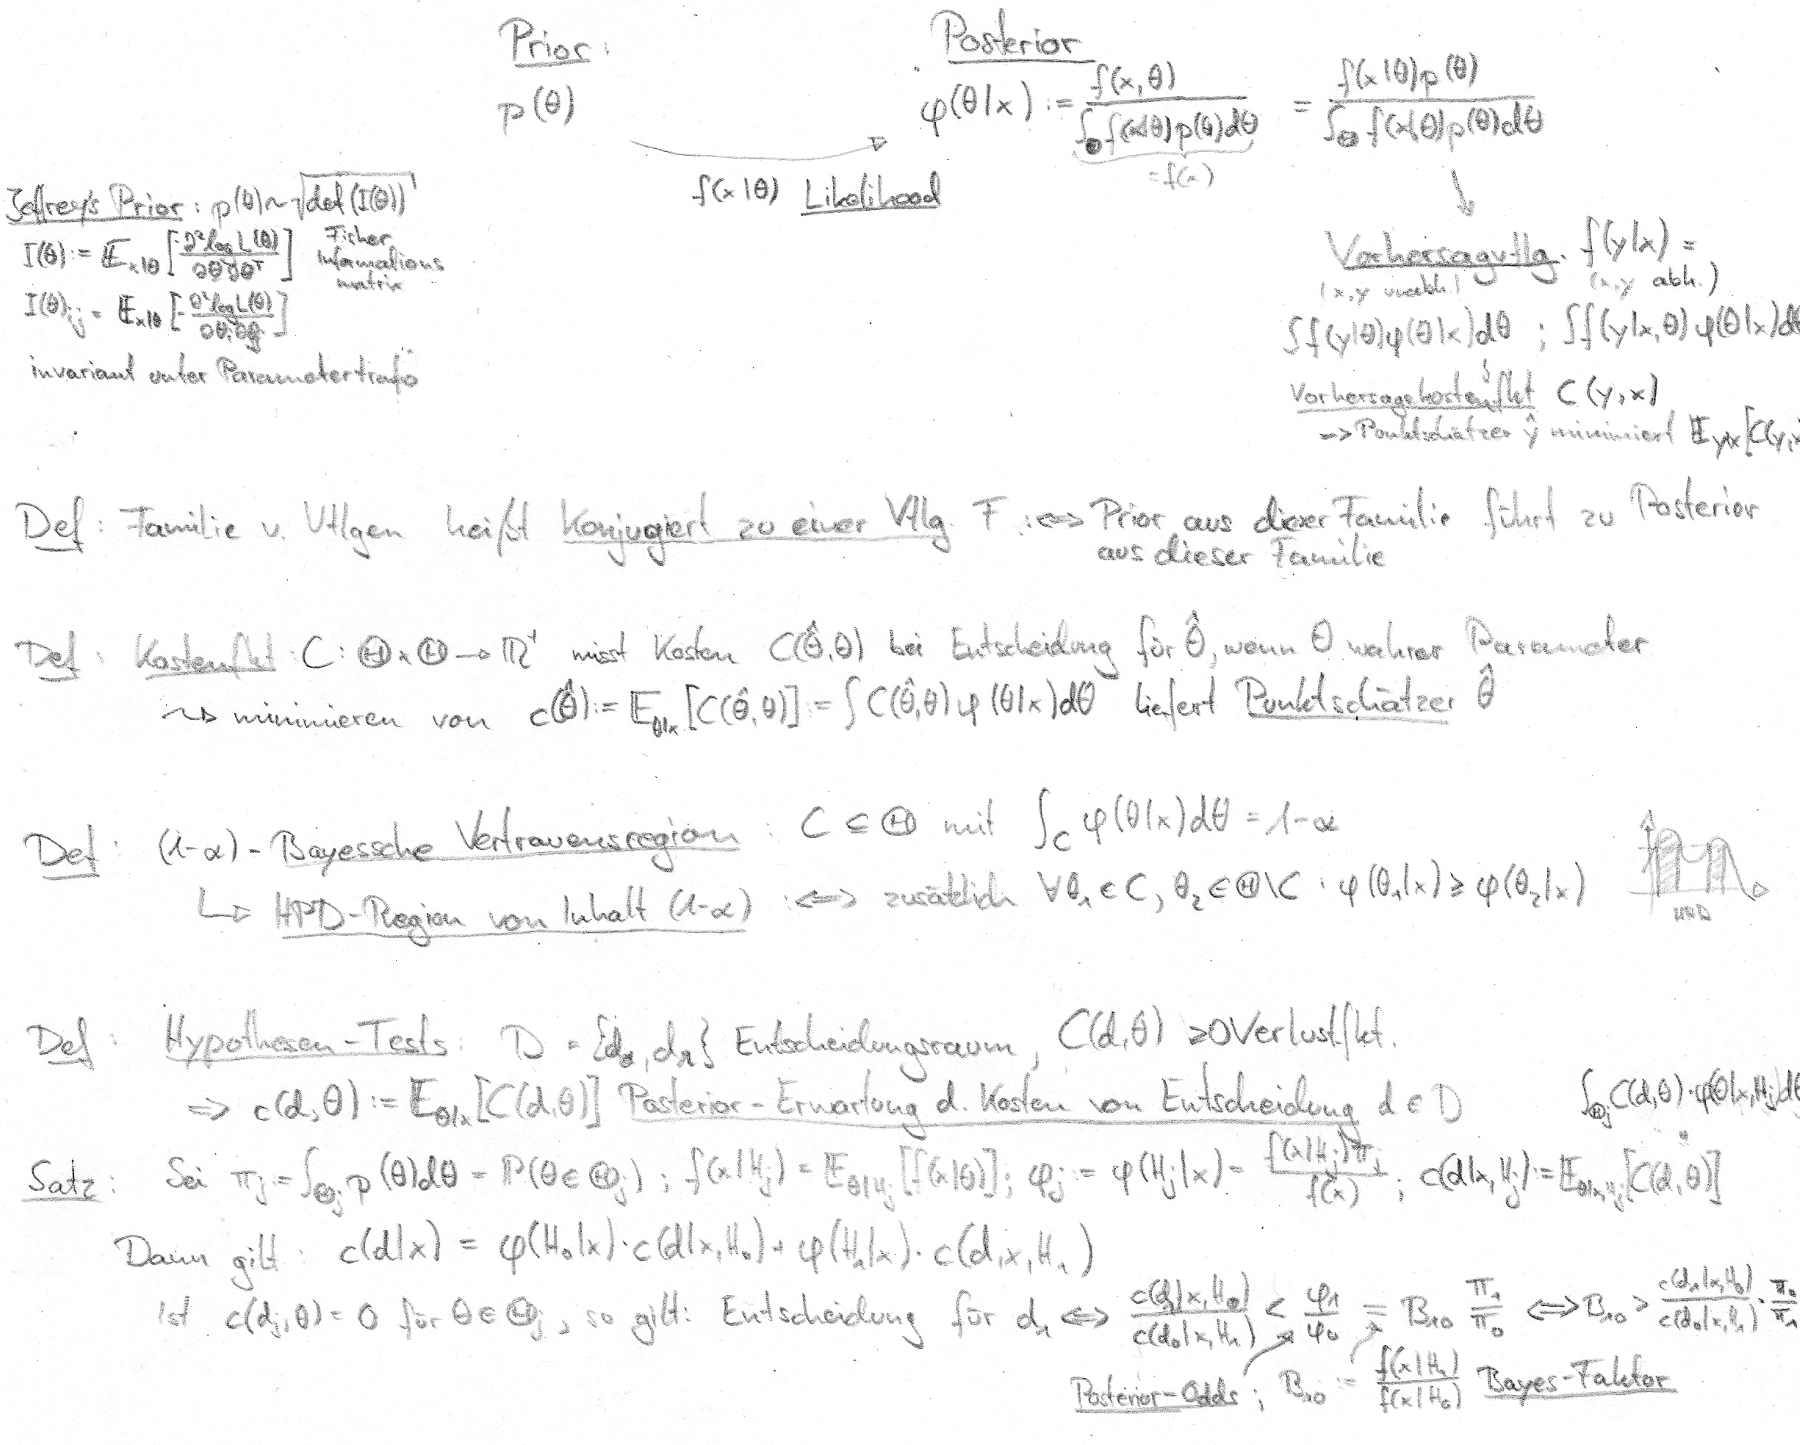 Prior:
p(θ)
Posterior
φ(θ|x) := f(x,θ) / ∫_Θ f(x|θ)p(θ)dθ = f(x|θ)p(θ) / ∫_Θ f(x|θ)p(θ)dθ
=f(x)
f(x|θ) Likelihood
Jeffrey's Prior: p(θ)~√det(I(θ))
I(θ):= 𝔼_x|θ [-∂²logL(θ) / ∂θ∂θᵀ] Fisher
Informations
matrix
I(θ)_ij = 𝔼_x|θ [-∂²logL(θ) / ∂θ_i∂θ_j]
invariant unter Parametertrafo
Vorhersagevtlg. f(y|x) =
(x,y unabh.) (x,y abh.)
∫f(y|θ)φ(θ|x)dθ ; ∫f(y|x,θ)φ(θ|x)dθ
Vorhersagekostenfkt C(y,x)
=> Punktschätzer ŷ minimiert 𝔼_y|x[C(y,
Def: Familie v. Vtlgen heißt konjugiert zu einer Vtlg. F :⟺ Prior aus dieser Familie führt zu Posterior
aus dieser Familie
Def: Kostenfkt: C: Θ×Θ→ℝ⁺ misst Kosten C(θ̂,θ) bei Entscheidung für θ̂, wenn θ wahrer Parameter
⇝ minimieren von c(θ̂):= 𝔼_θ|x[C(θ̂,θ)] := ∫C(θ̂,θ)φ(θ|x)dθ liefert Punktschätzer θ̂
Def: (1-α)-Bayessche Vertrauensregion: C ⊆ Θ mit ∫_C φ(θ|x)dθ = 1-α
↳ HPD-Region von Inhalt (1-α) :⟺ zusätzlich ∀θ₁∈C, θ₂∈Θ\C: φ(θ₁|x) ≥ φ(θ₂|x)
HPD
Def: Hypothesen-Tests: D = {d₀,d₁} Entscheidungsraum, C(d,θ) ≥0 Verlustfkt.
=> c(d,θ) := 𝔼_θ|x[C(d,θ)] Posterior-Erwartung d. Kosten von Entscheidung d∈D
∫_Θj C(d,θ)·φ(θ|x,H_j)dθ
Satz: Sei π_j := ∫_Θj p(θ)dθ = ℙ(θ∈Θ_j); f(x|H_j) = 𝔼_θ|Hj[f(x|θ)]; φ_j := φ(H_j|x) = f(x|H_j)π_j / f(x); c(d|x,H_j):= 𝔼_θ|x,Hj[C(d,θ)]
Dann gilt: c(d|x) = φ(H₀|x)·c(d|x,H₀) + φ(H₁|x)·c(d,x,H₁)
Ist c(d_j,θ)=0 für θ∈Θ_j, so gilt: Entscheidung für d₁ ⟺ c(d₁|x,H₀) / c(d₀|x,H₁) < φ₁/φ₀ = B₁₀ π₁/π₀ ⟺ B₁₀ > c(d₁|x,H₀) / c(d₀|x,H₁) · π₀/π₁
Posterior-Odds; B₁₀ := f(x|H₁) / f(x|H₀) Bayes-Faktor